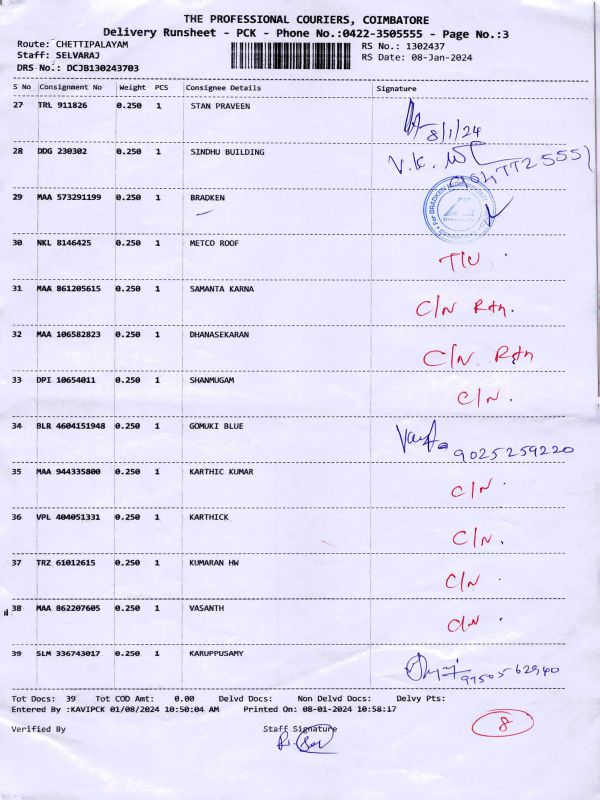 THE PROFESSIONAL COURIERS, COIMBATORE
Delivery Runsheet - PCK - Phone No.:0422-3505555 - Page No.:3
Route: CHETTIPALAYAM
RS No.: 1302437
Staff: SELVARAJ
RS Date: 08-Jan-2024
DRS No.: DCJB130243703
S No Consignment No Weight PCS Consignee Details Signature
27 TRL 911826 0.250 1 STAN PRAVEEN
8/1/24
28 DDG 230302 0.250 1 SINDHU BUILDING
V.K.
29 MAA 573291199 0.250 1 BRADKEN
30 NKL 8146425 0.250 1 METCO ROOF
31 MAA 861205615 0.250 1 SAMANTA KARNA C/N Rtn.
32 MAA 106582823 0.250 1 DHANASEKARAN C/N. Rtn
33 DPI 10654011 0.250 1 SHANMUGAM C/N.
34 BLR 4604151948 0.250 1 GOMUKI BLUE 9025259220
35 MAA 944335800 0.250 1 KARTHIC KUMAR C/N.
36 VPL 404051331 0.250 1 KARTHICK C/N.
37 TRZ 61012615 0.250 1 KUMARAN HW C/N.
38 MAA 862207605 0.250 1 VASANTH C/N.
39 SLM 336743017 0.250 1 KARUPPUSAMY
Tot Docs: 39 Tot COD Amt: 0.00 Delvd Docs: Non Delvd Docs: Delvy Pts:
Entered By :KAVIPCK 01/08/2024 10:50:04 AM Printed On: 08-01-2024 10:58:17
8
Verified By Staff Signature